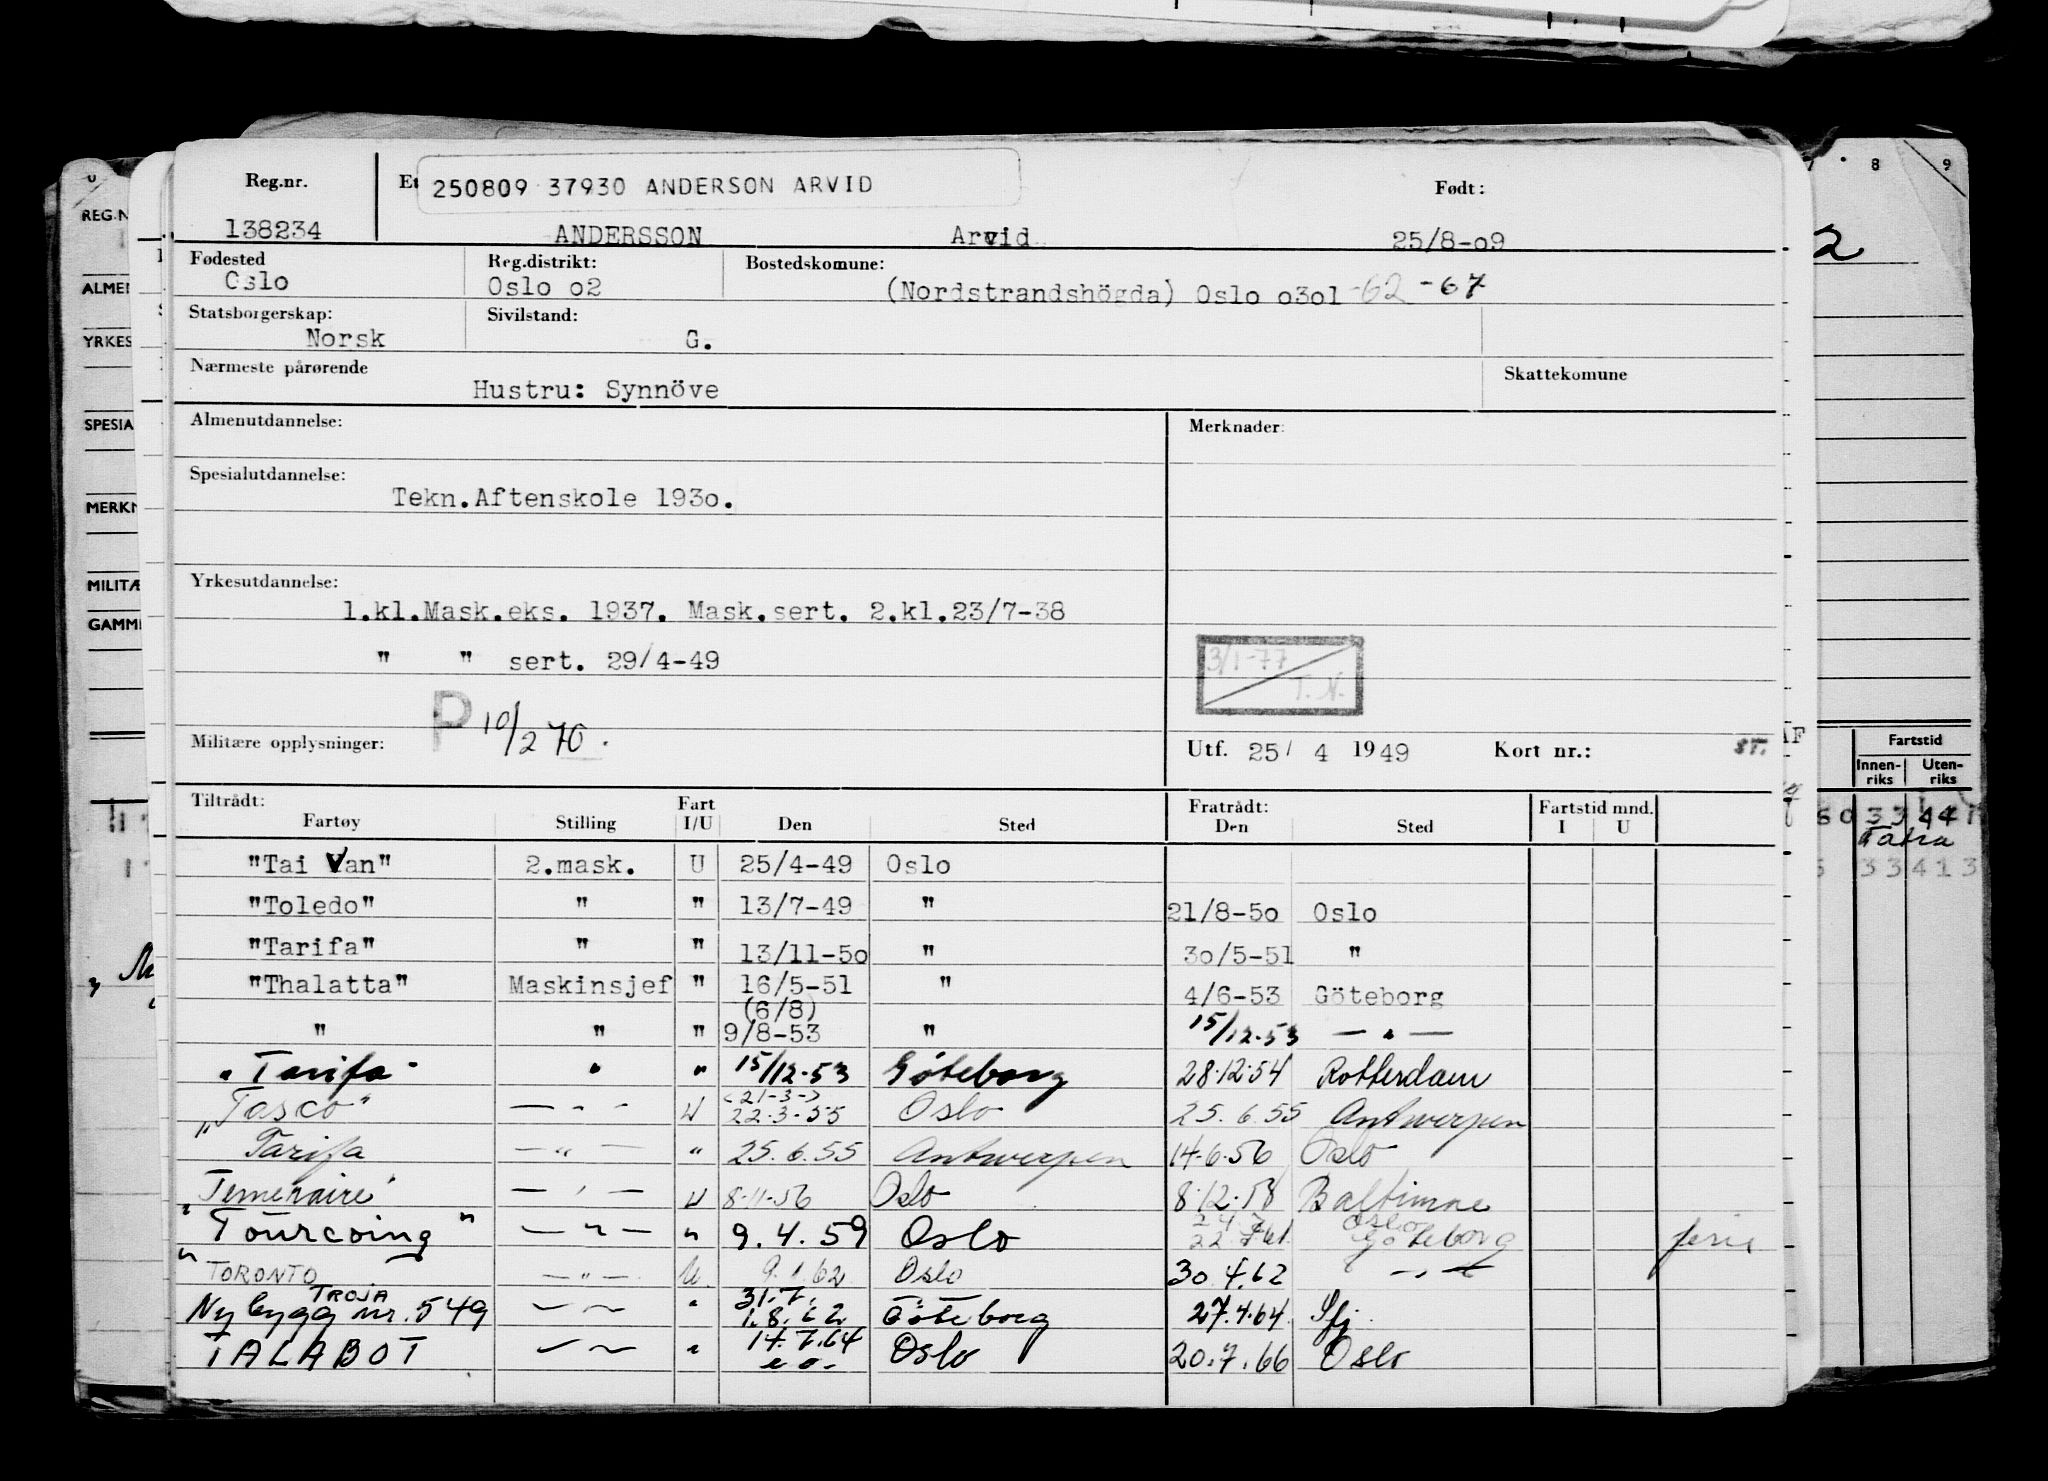 7 • 8 9
Reg.nr. Et 250809 37930 ANDERSON ARVID Født:
138234 ANDERSSON Arvid 25/8-o9
Fødested Reg.distrikt: Bostedskomune:
Oslo Oslo o2 (Nordstrandshögda) Oslo o3o1 -62 -67
Statsborgerskap: Sivilstand:
Norsk G.
Nærmeste pårørende Skattekomune
Hustru: Synnöve
Almenutdannelse: Merknader:
Spesialutdannelse:
Tekn.Aftenskole 193o.
Yrkesutdannelse:
1.kl.Mask.eks. 1937. Mask.sert. 2.kl.23/7-38
" " sert. 29/4-49
3/1-77
T.N.
P 10/2 70.
Militære opplysninger: Utf. 25/ 4 1949 Kort nr.: ST.
Tiltrådt: Fart Fratrådt: Fartstid mnd.
Fartøy Stilling I/U Den Sted Den Sted I U
"Tai Van" 2.mask. U 25/4-49 Oslo
"Toledo" " " 13/7-49 " 21/8-5o Oslo
"Tarifa" " " 13/11-5o " 3o/5-51 "
"Thalatta" Maskinsjef " 16/5-51 " 4/6-53 Göteborg
(6/8)
" " " 9/8-53 " 15/12-53 — " —
"Tarifa" " " 15/12-53 Göteborg 28.12.54 Rotterdam
(21-3-)
"Tasco" — " — U 22.3.55 Oslo 25.6.55 Antwerpen
Tarifa — " — " 25.6.55 Antwerpen 14.6.56 Oslo
"Temeraire" — " — U 8-11-56 Oslo 8.12.58 Baltimore
Oslo
"Tourcoing" — " — " 9.4.59 Oslo Göteborg ferie
"TORONTO — " — U. 9.1.62 Oslo 30.4.62 — " —
TROJA 31.7.
Nybygg nr. 549 — " — " 1.8.62 Göteborg 27.4.64 Sfj.
14.7.64
TALABOT — " — " Oslo 20.7.66 Oslo
REG.N
ALMEN
YRKES
SPESIA
MERKN
MILITÆ
GAMME
2
Fartstid
Innen-riks Uten-riks
Tatra